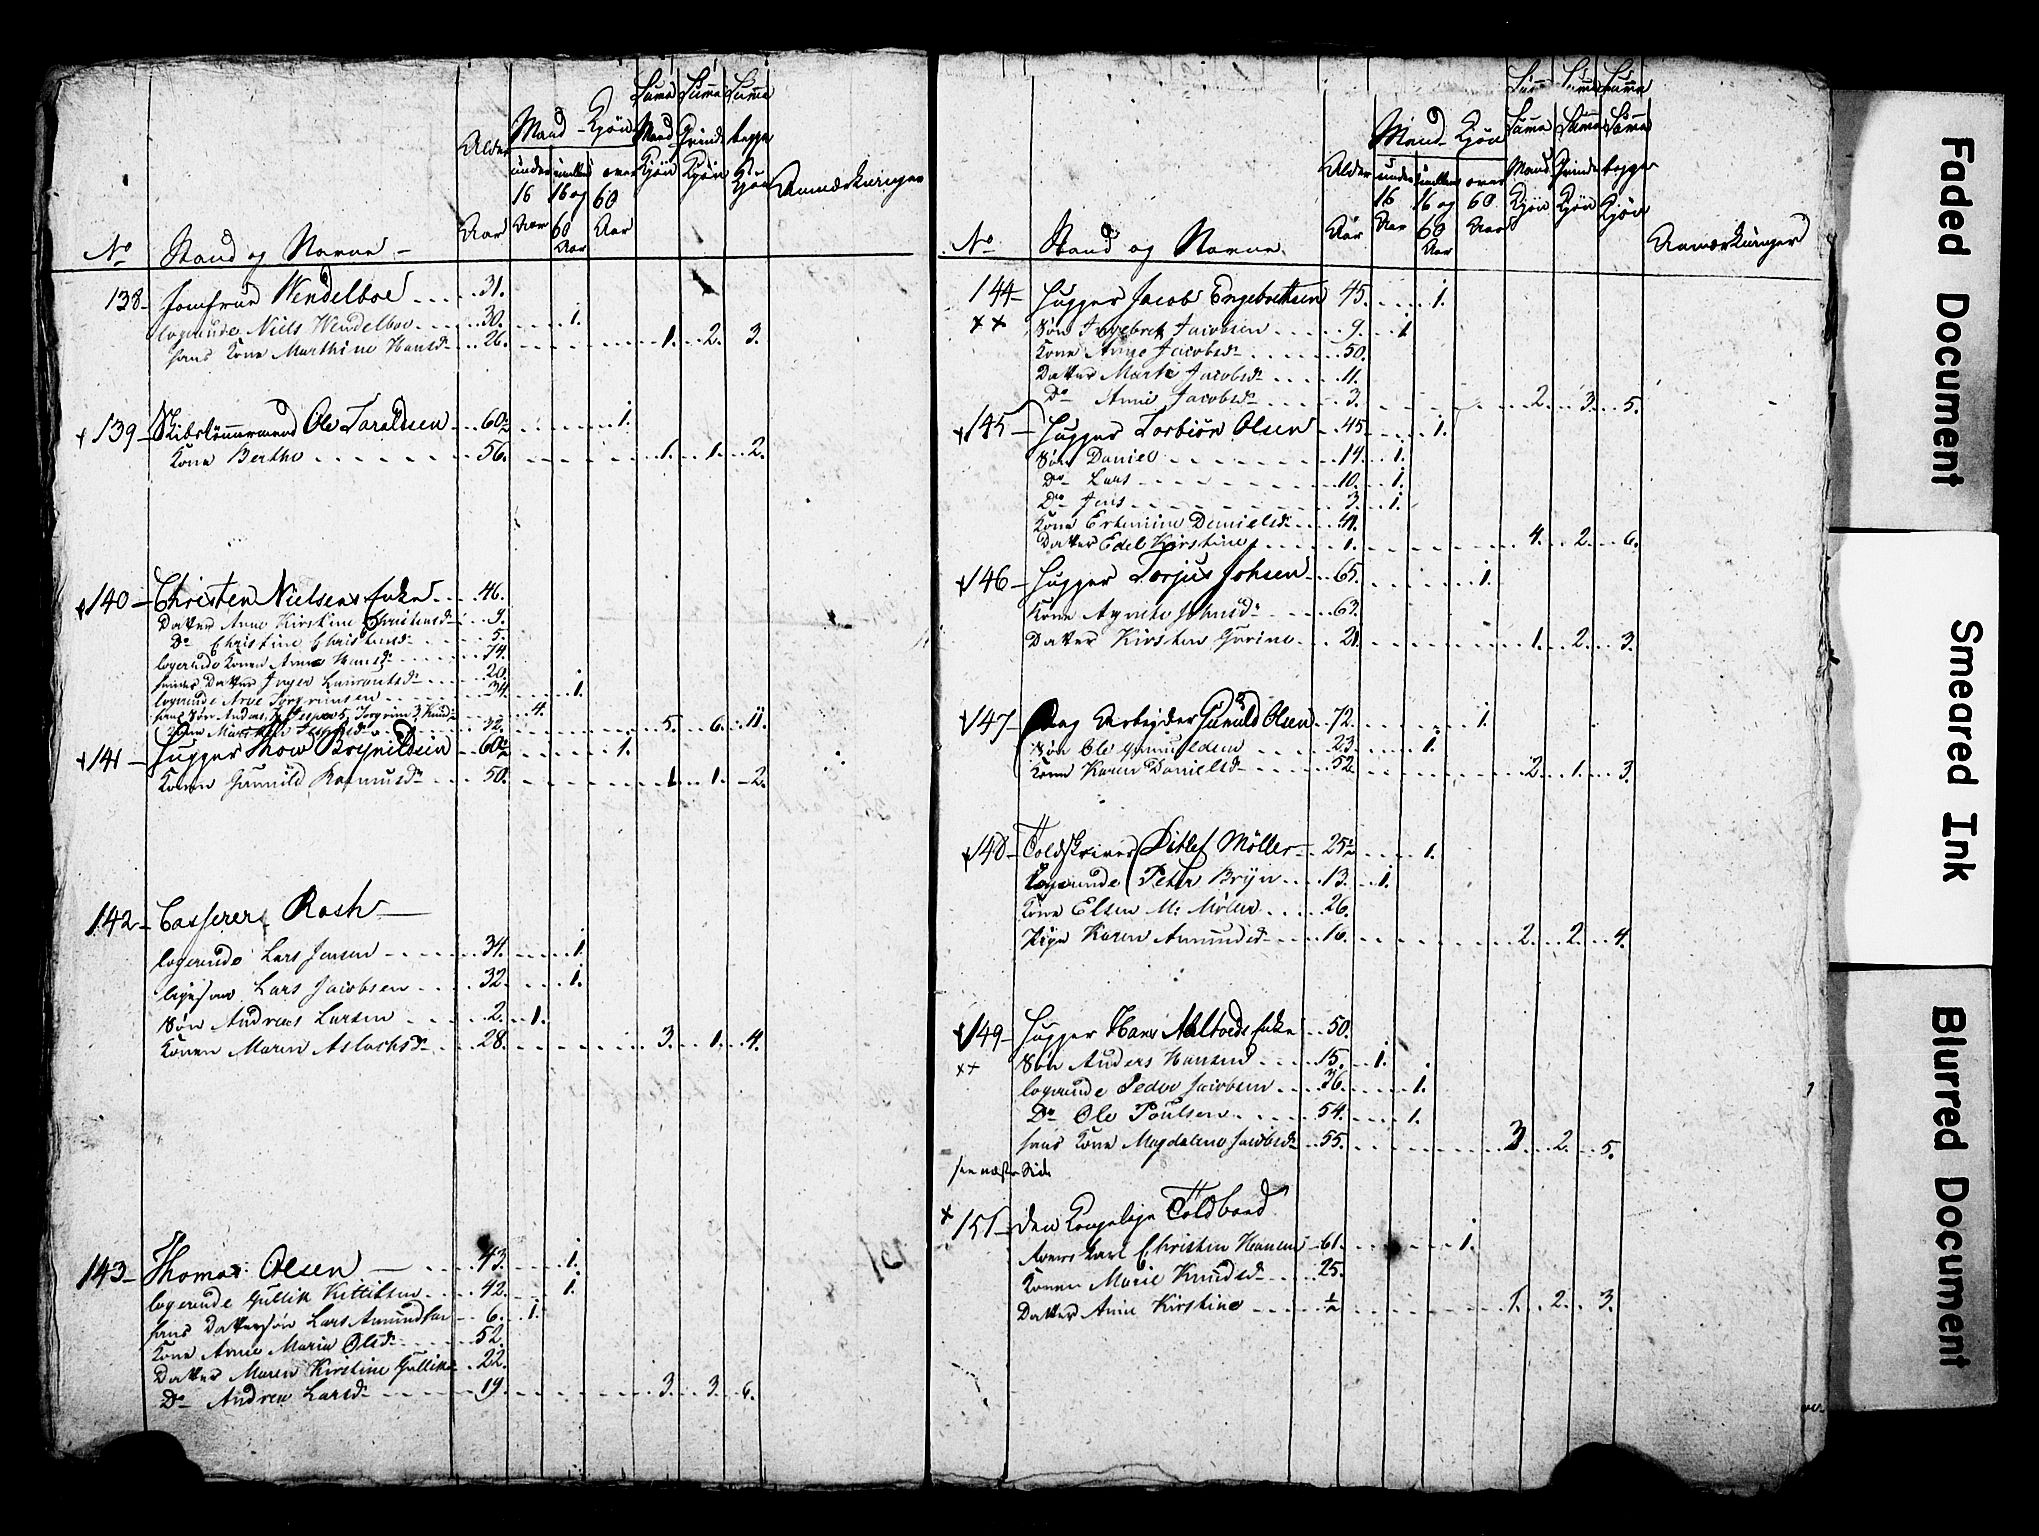 Alder Mand - Kjøn Summa Summa Summa
Mand Qvinde begge
under imellem over Kjøn Kjøn Kjøn Anmærkninger
16 16 og 60
Aar Aar 60 Aar
Aar
No Stand og Navne -
138 - Jomfrue Wendelboe .... 31.
logerende Niels Wendelboe .... 30. .... 1.
hans Kone Marthine Hansd. .. 26. .... 1. .. 2. .. 3.
+ 139 - Skibstømmermand Ole Taraldsen .. 60 .... 1.
Kone Berthe .... 56. .... 1. .. 1. .. 2.
+ 140 - Christen Nielsens Enke .. 46.
Datter Anne Kirstine Christensd. .. 9.
Do Christine Christensd. .. 5.
logerende Konen Anne Hansd. .... 74.
hendes Datter Inger .. 20.
logerende Arve Torgrimsen .... 34. .... 1.
hans Søn Anders 7, Jesper 5, Torgrim 3, Knud .. 4.
Kone .. 32. .... 5. .. 6. .. 11.
+ 141 - Hugger Thow Brynildsen .. 60 .... 1.
Konen Gunnild Rasmusd. .. 50. .... 1. .. 1. .. 2.
142 - Casserer Rosh -
logerende Lars Jensen .... 34. .... 1.
ligesaa Lars Jacobsen .... 32. .... 1.
Søn Andreas Larsen .... 2. .. 1.
Konen Maren Aslachsd. .. 28. .... 3. .. 1. .. 4.
143 - Thomas Olsen - .... 43. .... 1.
logerende Gullik Kittilsen .. 42. .... 1.
hans Dattersøn Lars Amundsen .. 6. .. 1.
Kone Anne Maria Olsd. .. 52.
Datter Maren Kirstine Gulliks .. 22.
Do Andrea Larsd. .... 19. .... 3. .. 3. .. 6.
Summa Summa Summa
Alder Mand - Kjøn Summa Summa Summa
under imellem over Mand Qvinde begge
16 16 og 60 Kjøn Kjøn Kjøn
Aar Aar 60 Aar
Aar
No Stand og Navne. Anmærkninger
144 - Hugger Jacob Engebrethsen 45. .... 1.
++ Søn Ingebret Jacobsen .... 9. .. 1.
Kone Anne Jacobsd. .... 50.
Datter Marte Jacobsd. .... 11.
Do Anne Jacobsd. .... 3. .... 2. .. 3. .. 5.
+ 145 - Hugger Torbiørn Olsen - 45. .... 1.
Søn Daniel .... 14. .. 1.
Do Lars .... 10. .. 1.
Do Jens .... 3. .. 1.
Kone Danielsd. .. 41.
Datter Edel Kirstine .. 1. .... 4. .. 2. .. 6.
+ 146 - Hugger Torjus Johsen .. 65. .... 1.
Kone Agnethe Johnsd. .... 62.
Datter Kirsten Gurine .. 21. .... 1. .. 2. .. 3.
+ 147 - Dag Arbejder Gunuld Olsen .. 72. .... 1.
Søn Ole Gunuldsen .... 23. .... 1.
Kone Karen Danielsd. .... 52. .... 2. .. 1. .. 3.
+ 148 - Toldskriver Ditlef Møller .. 25 .... 1.
logerende Peter Bryn .... 13. .. 1.
Kone Elsen M: Møller .... 26.
Pige Karen Amundsd. .... 16. .... 2. .. 2. .. 4.
+ 149 - Hugger Hans Enke .. 50.
++ Søn Anders Hansen .... 15. .. 1.
logerende Peder Jacobsen .... 36. .... 1.
Do Ole Poulsen .... 54. .... 1.
hans Kone Magdalene Jacobsd. .. 55. .... 3. .. 2. .. 5.
see næste Side
+ 151 - Den Kongelige Toldboed
Roers Karl Christen Hansen .. 61. .... 1.
Konen Marie Knudsd. .... 25.
Datter Anne Kirstine .... 1/2 .... 1. .. 2. .. 3.
Faded Document
Smeared Ink
Blurred Document